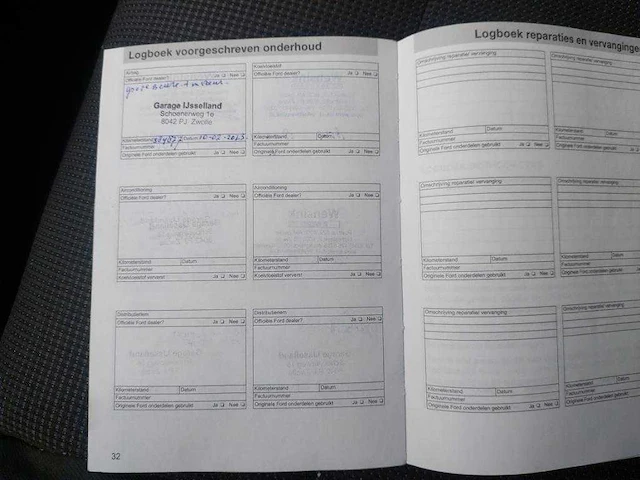 Logboek voorgeschreven onderhoud
Airbag
Officiële Ford dealer? Ja Nee
Garage IJsselland
Schoenerweg 1e
8042 PJ Zwolle
Kilometerstand Datum 10-02-2023
Factuurnummer
Originele Ford onderdelen gebruikt Ja Nee
Koelvloeistof
Officiële Ford dealer? Ja Nee
Kilometerstand Datum
Factuurnummer
Originele Ford onderdelen gebruikt Ja Nee
Airconditioning
Officiële Ford dealer? Ja Nee
Kilometerstand Datum
Factuurnummer
Koelvloeistof ververst Ja Nee
Airconditioning
Officiële Ford dealer? Ja Nee
Kilometerstand Datum
Factuurnummer
Koelvloeistof ververst Ja Nee
Distributieriem
Officiële Ford dealer? Ja Nee
Kilometerstand Datum
Factuurnummer
Originele Ford onderdelen gebruikt Ja Nee
Distributieriem
Officiële Ford dealer? Ja Nee
Kilometerstand Datum
Factuurnummer
Originele Ford onderdelen gebruikt Ja Nee
32
Logboek reparaties en vervanginge
Omschrijving reparatie/ vervanging
Kilometerstand Datum
Factuurnummer
Originele Ford onderdelen gebruikt Ja Nee
Omschrijving reparatie/ vervanging
Kilometerstand
Factuurnummer
Omschrijving reparatie/ vervanging
Kilometerstand Datum
Factuurnummer
Originele Ford onderdelen gebruikt Ja Nee
Omschrijving reparatie/ vervanging
Kilometerstand
Factuurnummer
Omschrijving reparatie/ vervanging
Kilometerstand Datum
Factuurnummer
Originele Ford onderdelen gebruikt Ja Nee
Omschrijving reparatie/ vervanging
Kilometerstand
Factuurnummer